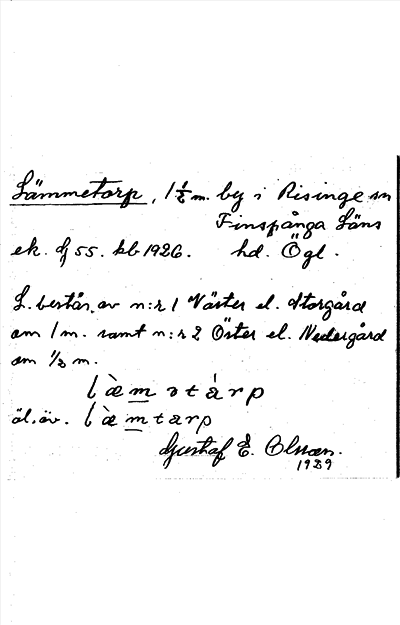 Lämmetorp, 1 1/2 m. by i Risinge sn
Finspånga Läns
ek. bl 55. kb 1926. hd. Ögl.
L. består av n:r 1 Väster el. Storgård
om 1 m. samt n:r 2 Öster el. Nedergård
om 1/2 m.
l æ̀ m ə t á r p
äl. äv. l æ̀ m t a r p
Gustaf E. Olsson.
1929